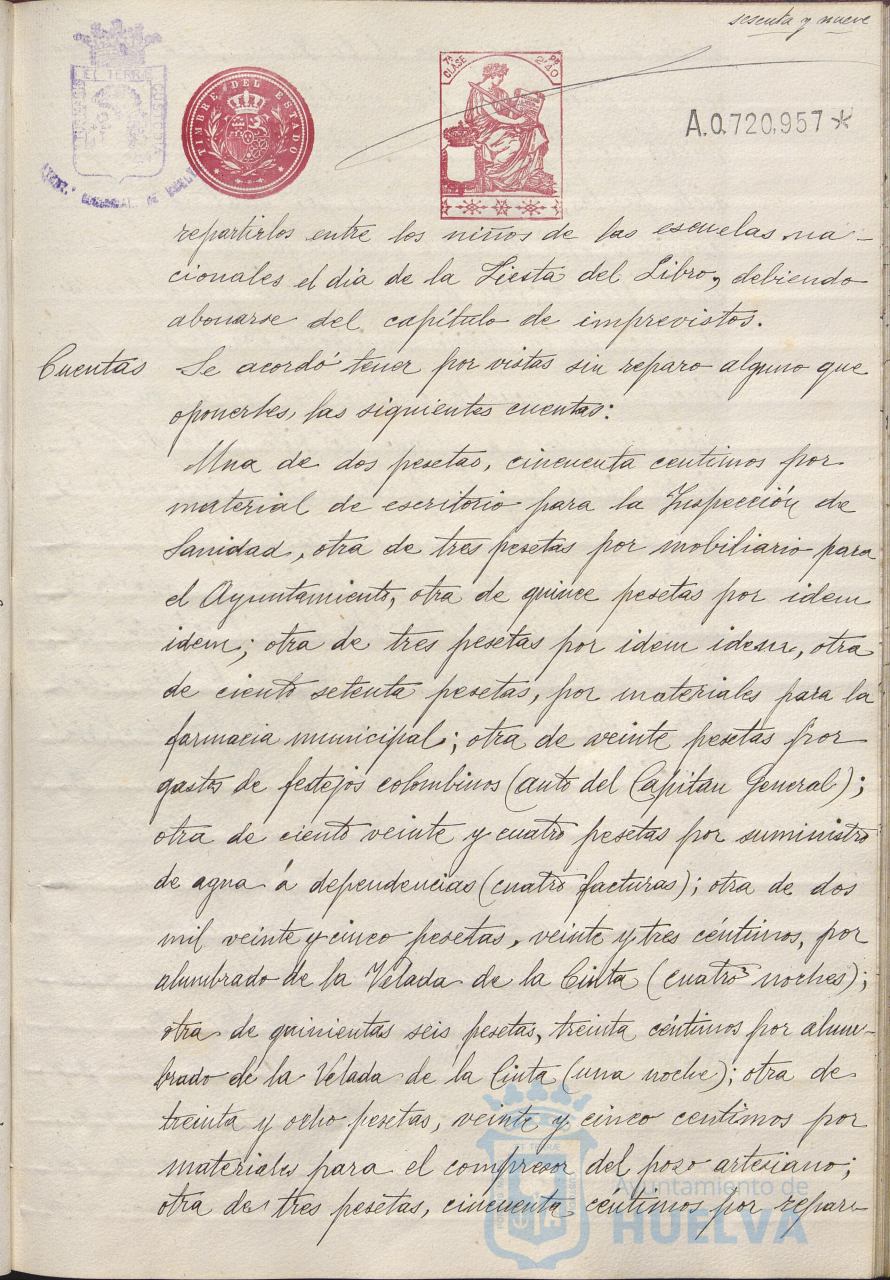 sesenta y nueve
TIMBRE DEL ESTADO
7ª CLASE
2'40
A.0.720,957*
repartirlos entre los niños de las escuelas na-
cionales el día de la Fiesta del Libro, debiendo
abonarse del capítulo de imprevistos.
Cuentas Se acordó tener por vistas sin reparo alguno que
oponerles, las siguientes cuentas:
Una de dos pesetas, cincuenta centimos por
material de escritorio para la Inspección de
Sanidad, otra de tres pesetas por mobiliario para
el Ayuntamiento, otra de quince pesetas por idem
idem; otra de tres pesetas por idem idem, otra
de ciento setenta pesetas, por materiales para la
farmacia municipal; otra de veinte pesetas por
gastos de festejos colombinos (auto del Capitan General);
otra de ciento veinte y cuatro pesetas por suministro
de agua á dependencias (cuatro facturas); otra de dos
mil veinte y cinco pesetas, veinte y tres céntimos, por
alumbrado de la Velada de la Cinta (cuatro noches);
otra de quinientas seis pesetas, treinta céntimos por alum-
brado de la Velada de la Cinta (una noche); otra de
treinta y ocho pesetas, veinte y cinco centimos por
materiales para el compresor del pozo artesiano;
otra de tres pesetas, cincuenta centimos por repara-
Ayuntamiento de
HUELVA